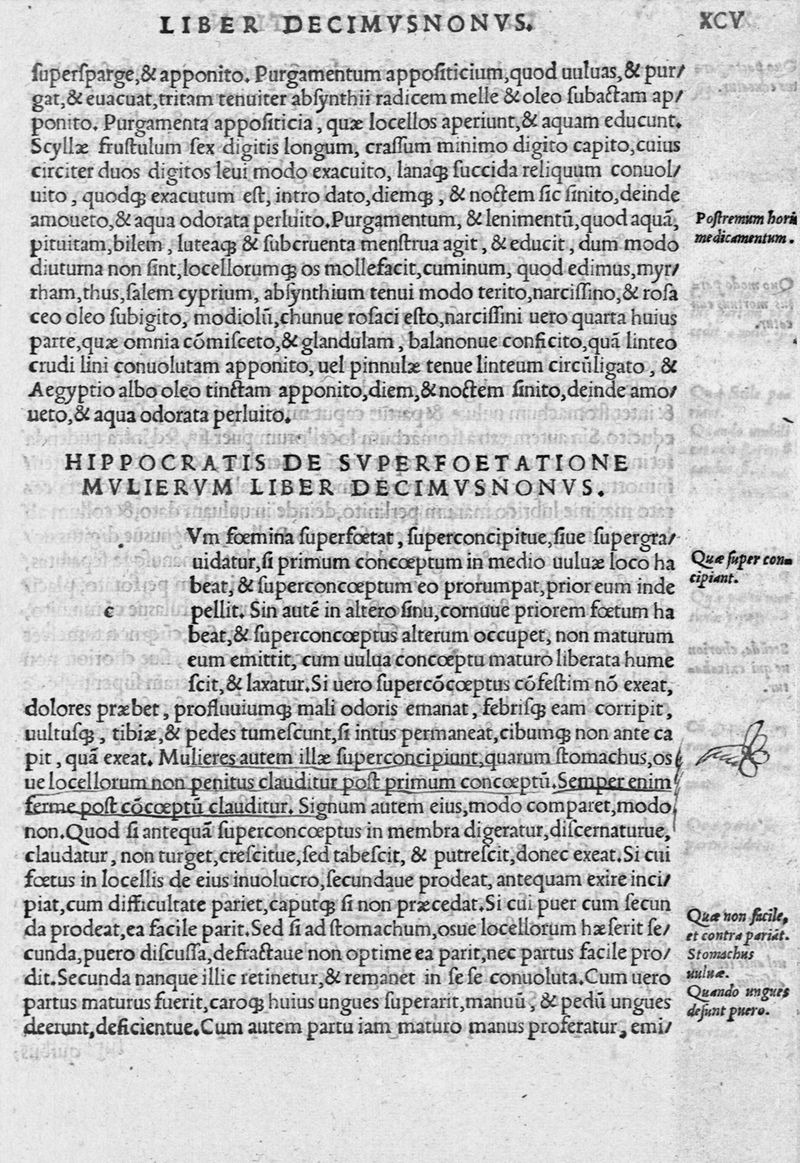 LIBER DECIMVSNONVS. XCV
ſuperſparge,& apponito. Purgamentum appoſiticium,quod uuluas,& pur/
gat,& euacuat,tritam tenuiter abſynthii radicem melle & oleo ſubactam ap/
ponito. Purgamenta appoſiticia, quæ locellos aperiunt,& aquam educunt.
Scyllæ fruſtulum ſex digitis longum, craſſum minimo digito capito,cuius
circiter duos digitos leui modo exacuito, lanaqꝫ ſuccida reliquum conuol/
uito, quodqꝫ exacutum eſt, intro dato,diemqꝫ, & noctem ſic ſinito,deinde
amoueto,& aqua odorata perluito.Purgamentum, & lenimentũ,quod aquã,
pituitam,bilem, luteaqꝫ & ſubcruenta menſtrua agit, & educit, dum modo
diuturna non ſint,locellorumqꝫ os mollefacit,cuminum, quod edimus,myr/
rham,thus,ſalem cyprium, abſynthium tenui modo terito,narciſſino,& roſa
ceo oleo ſubigito, modiolũ,chunue roſaci eſto,narciſſini uero quarta huius
parte,quæ omnia cõmiſceto,& glandulam, balanonue conficito,quã linteo
crudi lini conuolutam apponito, uel pinnulæ tenue linteum circũligato, &
Aegyptio albo oleo tinctam apponito,diem,& noctem ſinito,deinde amo/
ueto,& aqua odorata perluito.
Poſtremum horũ
medicamentum.
HIPPOCRATIS DE SVPERFOETATIONE
MVLIERVM LIBER DECIMVSNONVS.
c
Vm fœmina ſuperfœtat, ſuperconcipitue,ſiue ſupergra/
uidatur,ſi primum concœptum in medio uuluæ loco ha
beat, & ſuperconcœptum eo prorumpat,prior eum inde
pellit. Sin autẽ in altero ſinu,cornuue priorem fœtum ha
beat,& ſuperconcœptus alterum occupet, non maturum
eum emittit, cum uulua concœptu maturo liberata hume
ſcit,& laxatur.Si uero ſupercõcœptus cõfeſtim nõ exeat,
dolores præbet, profluuiumqꝫ mali odoris emanat, febriſqꝫ eam corripit,
uultuſqꝫ, tibiæ,& pedes tumeſcunt,ſi intus permaneat,cibumqꝫ non ante ca
pit, quã exeat. Mulieres autem illæ ſuperconcipiunt,quarum ſtomachus,os
ue locellorum non penitus clauditur poſt primum concœptũ.Semper enim
ferme poſt cõcœptũ clauditur. Signum autem eius,modo comparet,modo
non.Quod ſi antequã ſuperconcœptus in membra digeratur,diſcernaturue,
claudatur, non turget,creſcitue,ſed tabeſcit, & putreſcit,donec exeat.Si cui
fœtus in locellis de eius inuolucro,ſecundaue prodeat, antequam exire inci/
piat,cum difficultate pariet,caputqꝫ ſi non præcedat.Si cui puer cum ſecun
da prodeat,ea facile parit.Sed ſi ad ſtomachum,osue locellorum hæſerit ſe/
cunda,puero diſcuſſa,defractaue non optime ea parit,nec partus facile pro/
dit.Secunda nanque illic retinetur,& remanet in ſe ſe conuoluta.Cum uero
partus maturus fuerit,caroqꝫ huius ungues ſuperarit,manuũ, & pedũ ungues
deerunt,deficientue.Cum autem partu iam maturo manus proferatur, emi/
Quæ ſuper con=
cipiant.
Quæ non facile,
et contra pariãt.
Stomachus
uuluæ.
Quando ungues
deſunt puero.